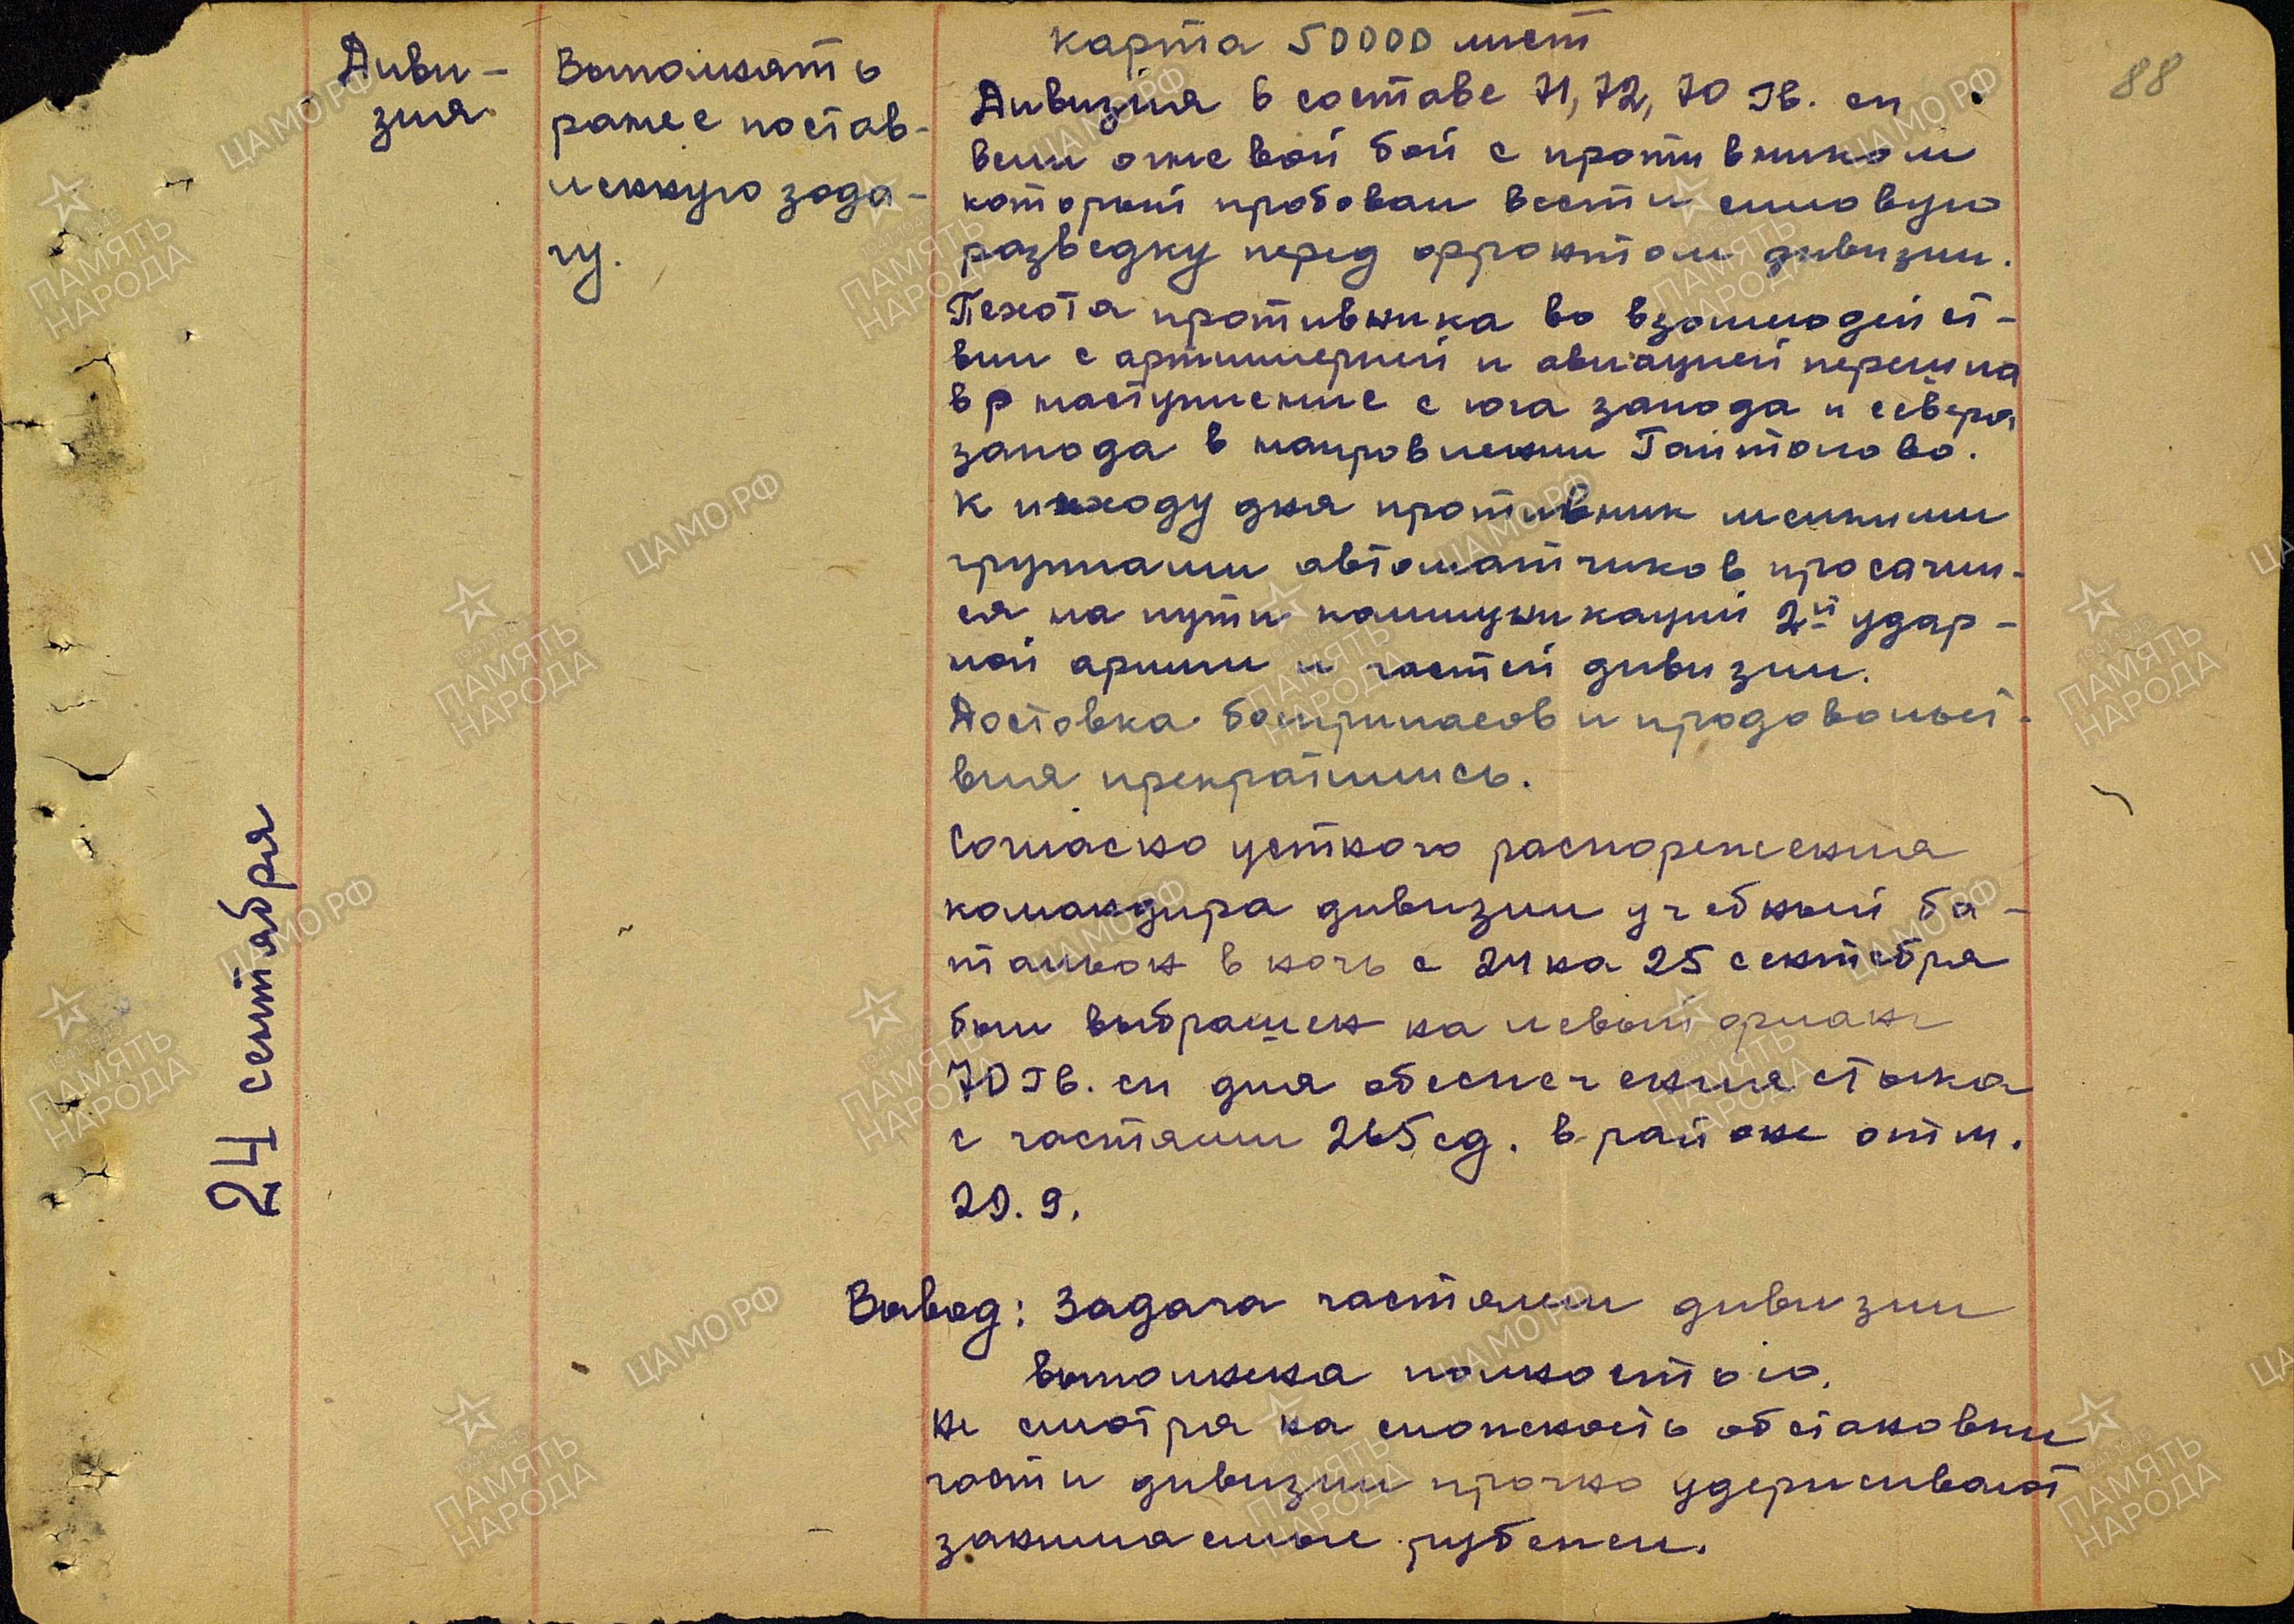 карта 50000 лист
88
Диви-
зия
Выполнять
ранее постав-
ленную зада-
чу.
24 сентября
Дивизия в составе 71, 72, 70 Гв. сп
вели огневой бой с противником
который пробовал вести силовую
разведку перед фронтом дивизии.
Пехота противника во взаимодейст-
вии с артиллерией и авиацией перешла
в наступление с юга запада и севера
запада в направлении Гайтолово.
К исходу дня противник мелкими
группами автоматчиков просочил-
ся на пути коммуникаций 2й удар-
ной армии и частей дивизии.
Доставка боеприпасов и продовольст-
вия прекратились.
Согласно устного распоряжения
командира дивизии учебный ба-
тальон в ночь с 24 на 25 сентября
был выброшен на левый фланг
70 Гв. сп для обеспечения стыка
с частями 265 сд. в районе отм.
20.9.
Вывод: Задача частями дивизии
выполнена полностью.
Не смотря на сложность обстановки
части дивизии прочно удерживают
занимаемые рубежи.
ЦАМО РФ
1941-1945
ПАМЯТЬ
НАРОДА